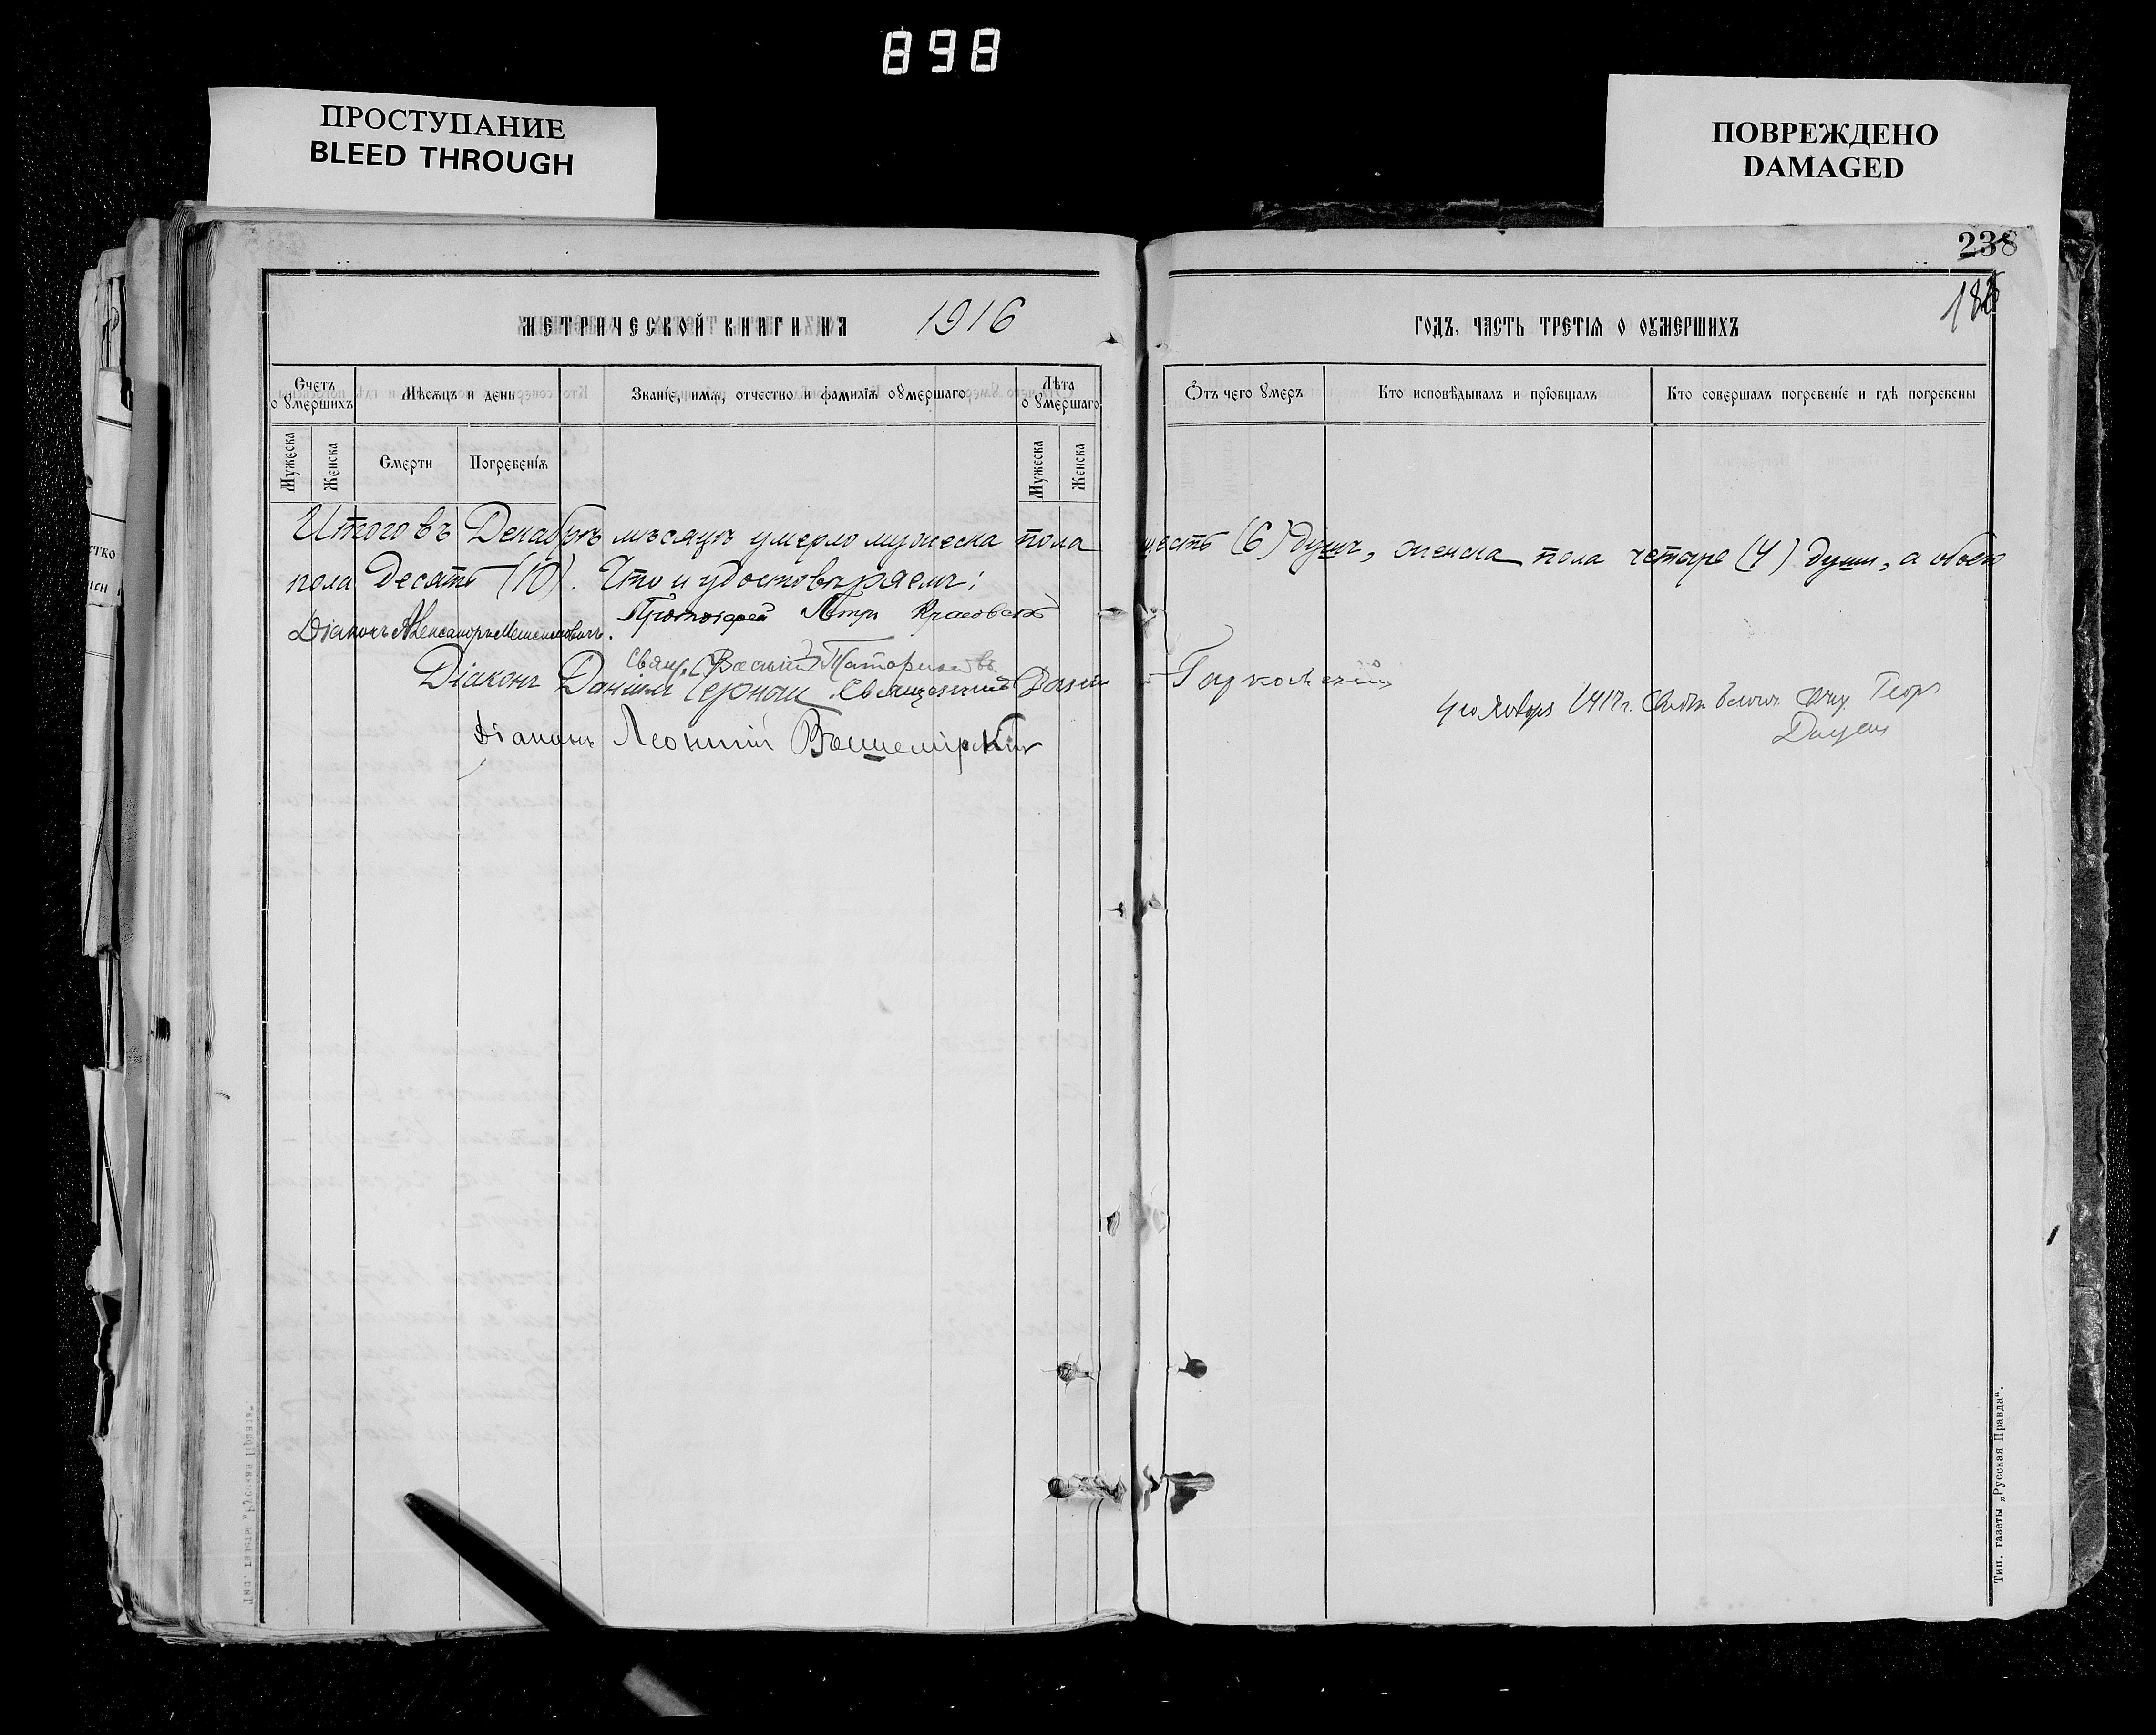 898
ПРОСТУПАНИЕ
BLEED THROUGH
ПОВРЕЖДЕНО
DAMAGED
238
МЕТРИЧЕСКОЙ КНИГИ НА 1916 ГОДЪ, ЧАСТЬ ТРЕТІѦ О ОУМЕРШИХЪ
Счетъ о Ꙋмершихъ
Мѣсѧцъ и день
Званіе, имѧ, отчество и фамиліѧ оꙊмершаго
Лѣта оꙊмершаго
Ѿтъ чего Ꙋмеръ
Кто исповѣдывалъ и пріобщалъ
Кто совершалъ погребеніе и гдѣ погребены
Мужеска
Женска
Смерти
Погребеніѧ
Мужеска
Женска
Итого въ Декабрѣ мѣсяцѣ умерло мужеска пола шесть (6) душъ, женска пола четыре (4) души, а обоего
пола десять (10). Что и удостовѣряемъ:
Протоіерей Петръ
Діаконъ Александръ
Свящ. Василій
Діаконъ Даніилъ Чернай Священникъ
Діаконъ Леонтій
4 го Января 1917 г.
Тип. газеты „Русская Правда“.